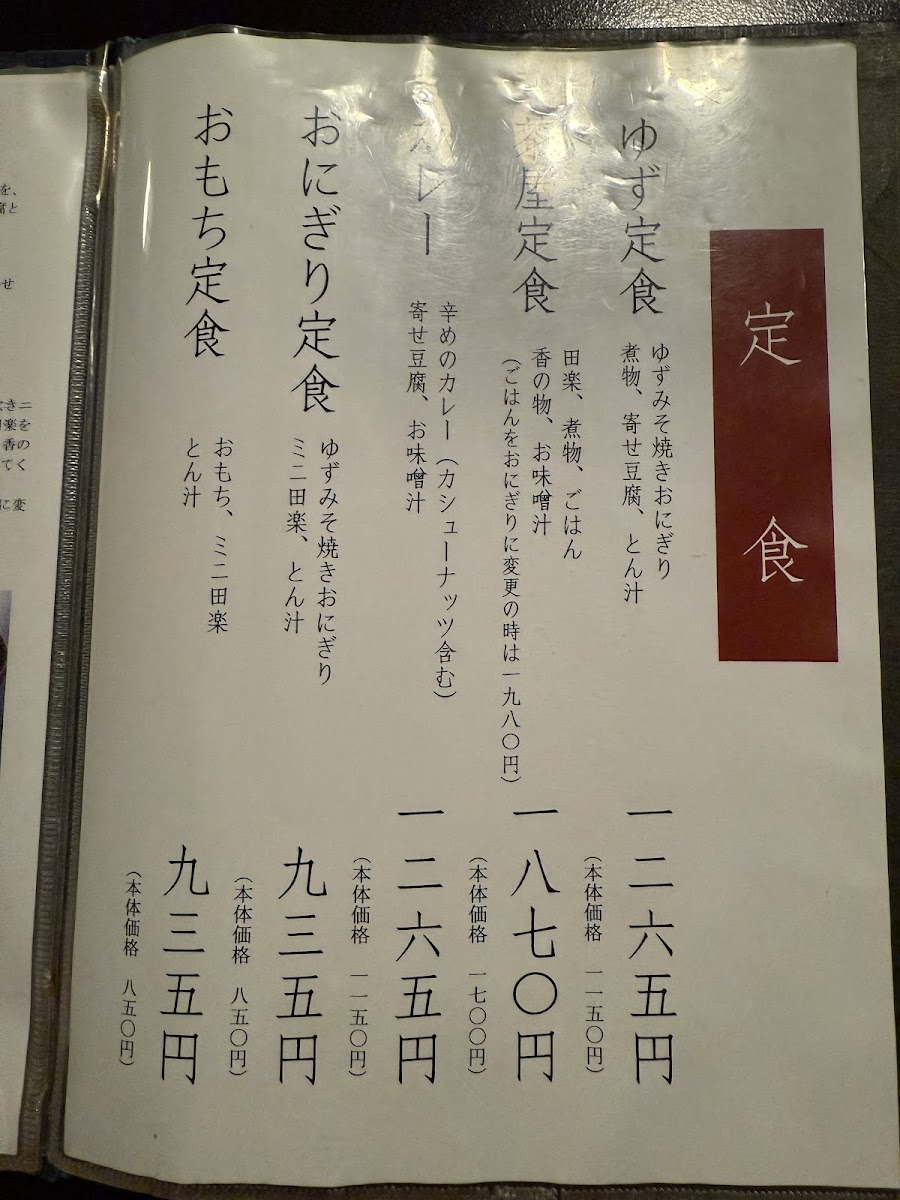 定食
ゆず定食
ゆずみそ焼きおにぎり
煮物、寄せ豆腐、とん汁
一二六五円
（本体価格　一一五〇円）
茶屋定食
田楽、煮物、ごはん
香の物、お味噌汁
（ごはんをおにぎりに変更の時は一九八〇円）
一八七〇円
（本体価格　一七〇〇円）
カレー
辛めのカレー（カシューナッツ含む）
寄せ豆腐、お味噌汁
一二六五円
（本体価格　一一五〇円）
おにぎり定食
ゆずみそ焼きおにぎり
ミニ田楽、とん汁
九三五円
（本体価格　八五〇円）
おもち定食
おもち、ミニ田楽
とん汁
九三五円
（本体価格　八五〇円）
を、
腐と
せ
きニ
楽を
香の
てく
に変